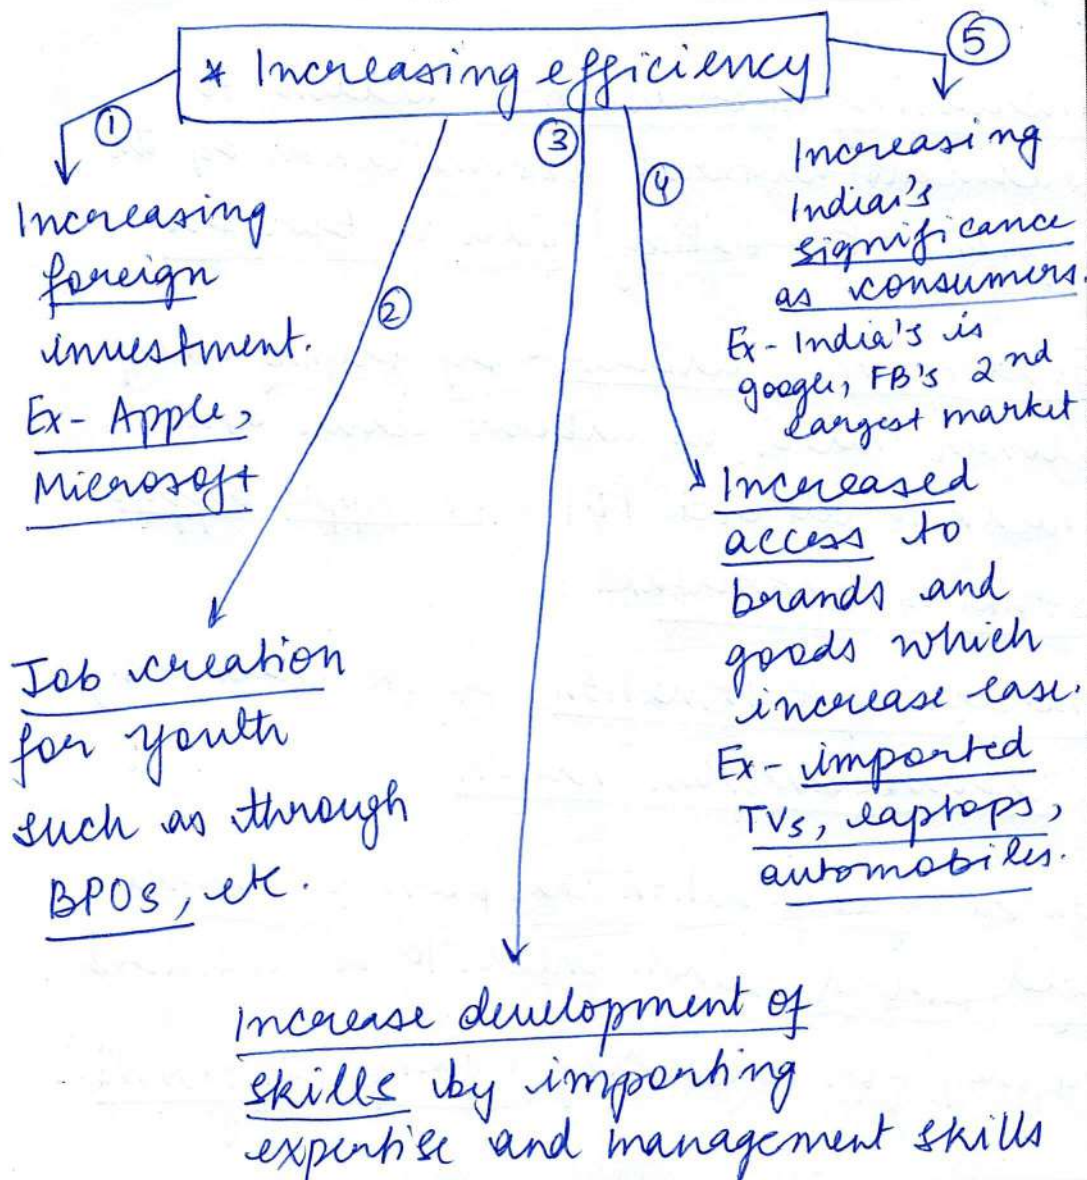 * Increasing efficiency
①
Increasing
foreign
investment.
Ex- Apple,
Microsoft
②
Job creation
for youth
such as through
BPOs, etc.
③
Increase development of
skills by importing
expertise and management skills
④
Increased
access to
brands and
goods which
increase ease.
Ex- imported
TVs, laptops,
automobiles.
⑤
Increasing
India's
significance
as consumers.
Ex- India's is
google, FB's 2nd
largest market